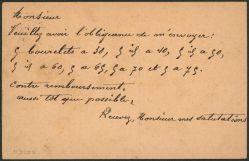 Monsieur
Veuillez avoir l'obligeance de m'envoyer :
5 Courrelets a 30, 5 id a 40, 5 id a 50,
5 id a 60, 5 a 65, 5 a 70 et 5 a 75.
Contre remboursement,
aussi tôt que possible,
Recevez, Monsieur mes salutations